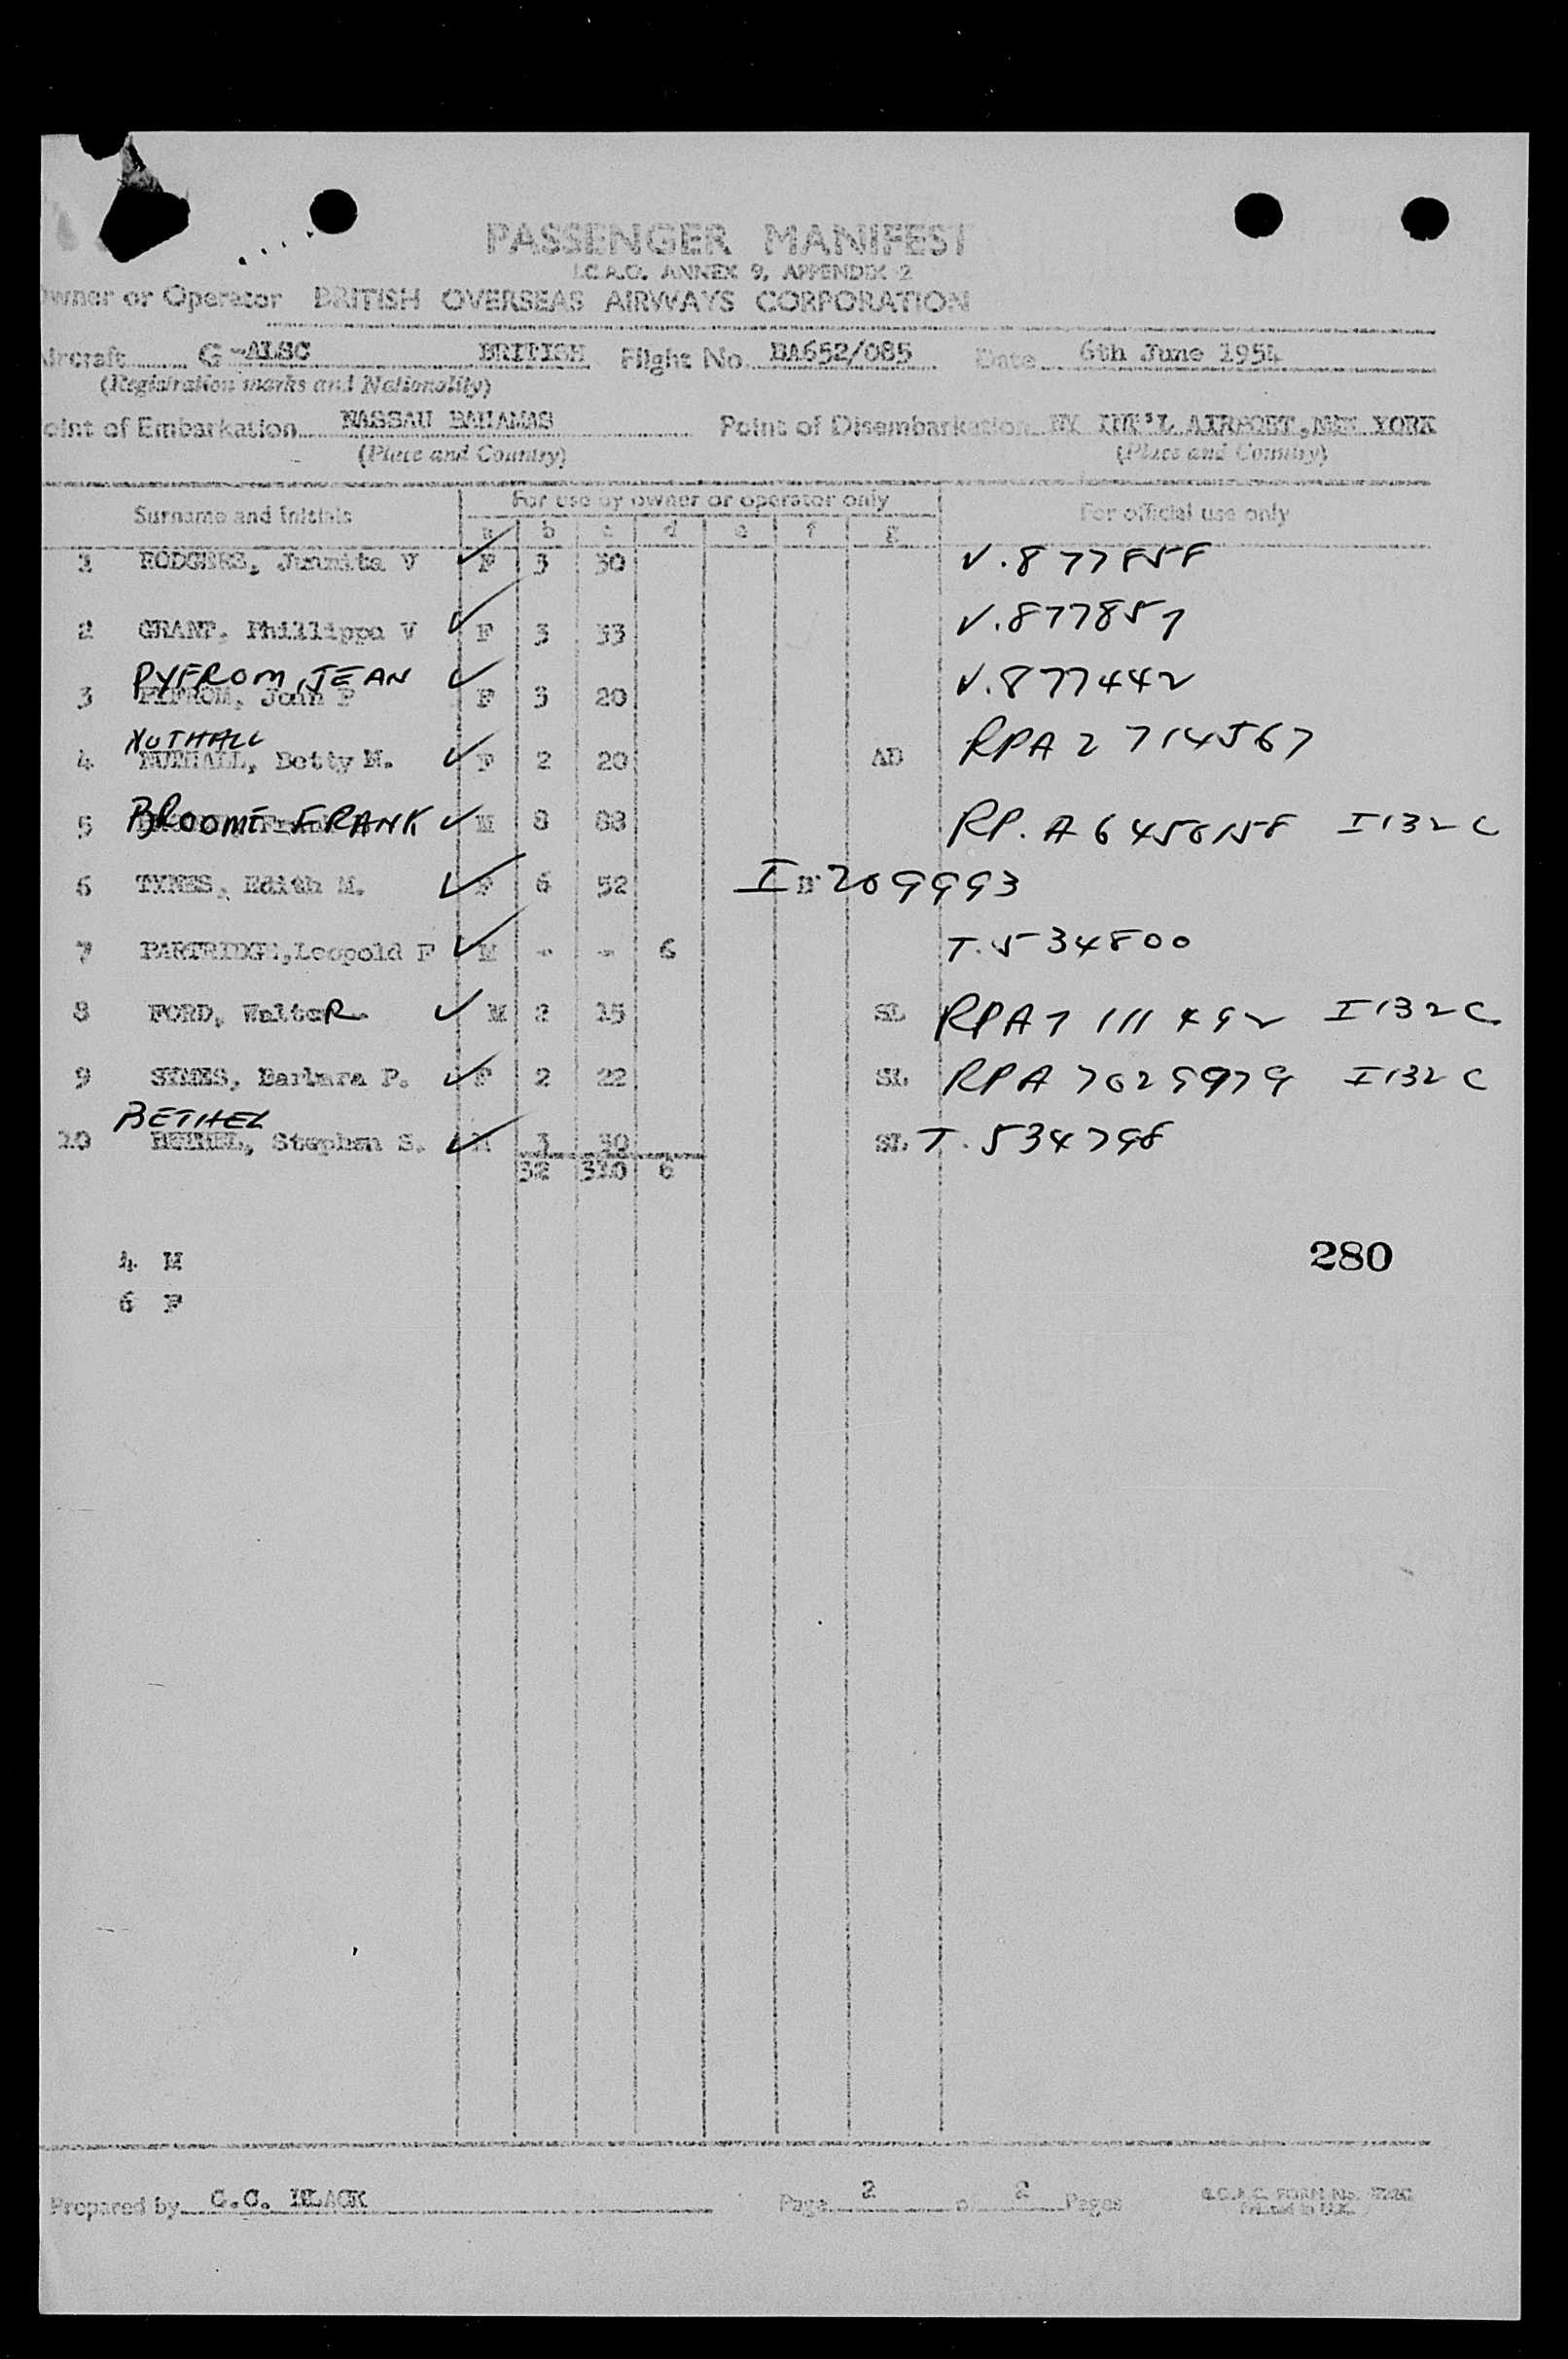 PASSENGER MANIFEST
I.C.A.O. ANNEX 9, APPENDIX 2
Owner or Operator BRITISH OVERSEAS AIRWAYS CORPORATION
Aircraft G-ALSC BRITISH Flight No. BA652/085 Date 6th June 1954
(Registration marks and Nationality)
Point of Embarkation NASSAU BAHAMAS Point of Disembarkation NY INT'L AIRPORT, NEW YORK
(Place and Country) (Place and Country)
For use by owner or operator only
Surname and Initials For official use only
a b c d e f g
1 RODGERS, Juanita V F 3 30 V.877858
2 GRANT, Phillippa V F 3 33 V.877857
PYFROM, JEAN
3 F 3 20 V.877442
NUTHALL
4 Betty M. F 2 20 AD RPA2 714567
5 BLOOME FRANK M 8 88 RP.A6458158 I132C
6 TYNES, Edith M. F 6 52 I 209993
7 PARTRIDGE, Leopold F M - - 6 T.534800
8 FORD, WalteR M 2 15 SL RPA7 111492 I132C
9 SYMES, Barbara P. F 2 22 SL RPA 7029979 I132C
BETHEL
10 Stephen S. M 3 30 SL T.534798
32 310 6
4 M
6 F
280
Prepared by C.C. BLACK Page 2 of 2 Pages
Printed in U.K.